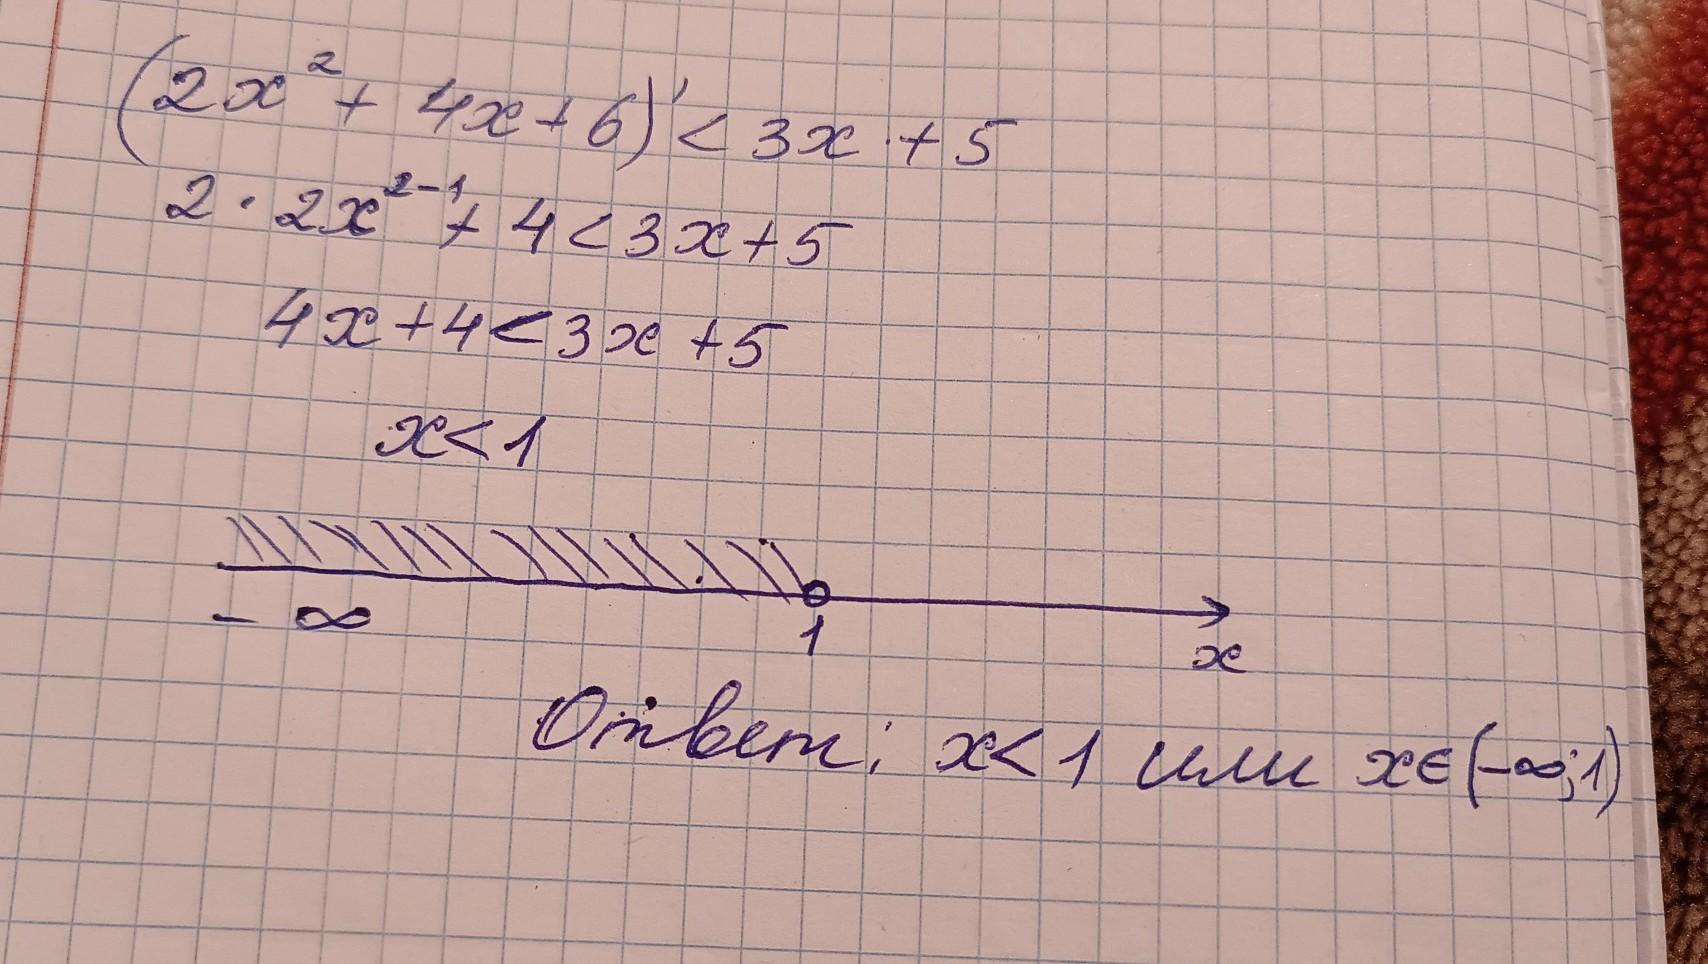 (2x² + 4x + 6)' < 3x + 5
2 · 2x²⁻¹ + 4 < 3x + 5
4x + 4 < 3x + 5
x < 1
- ∞ 1 x
Ответ: x < 1 или x ∈ (-∞; 1)